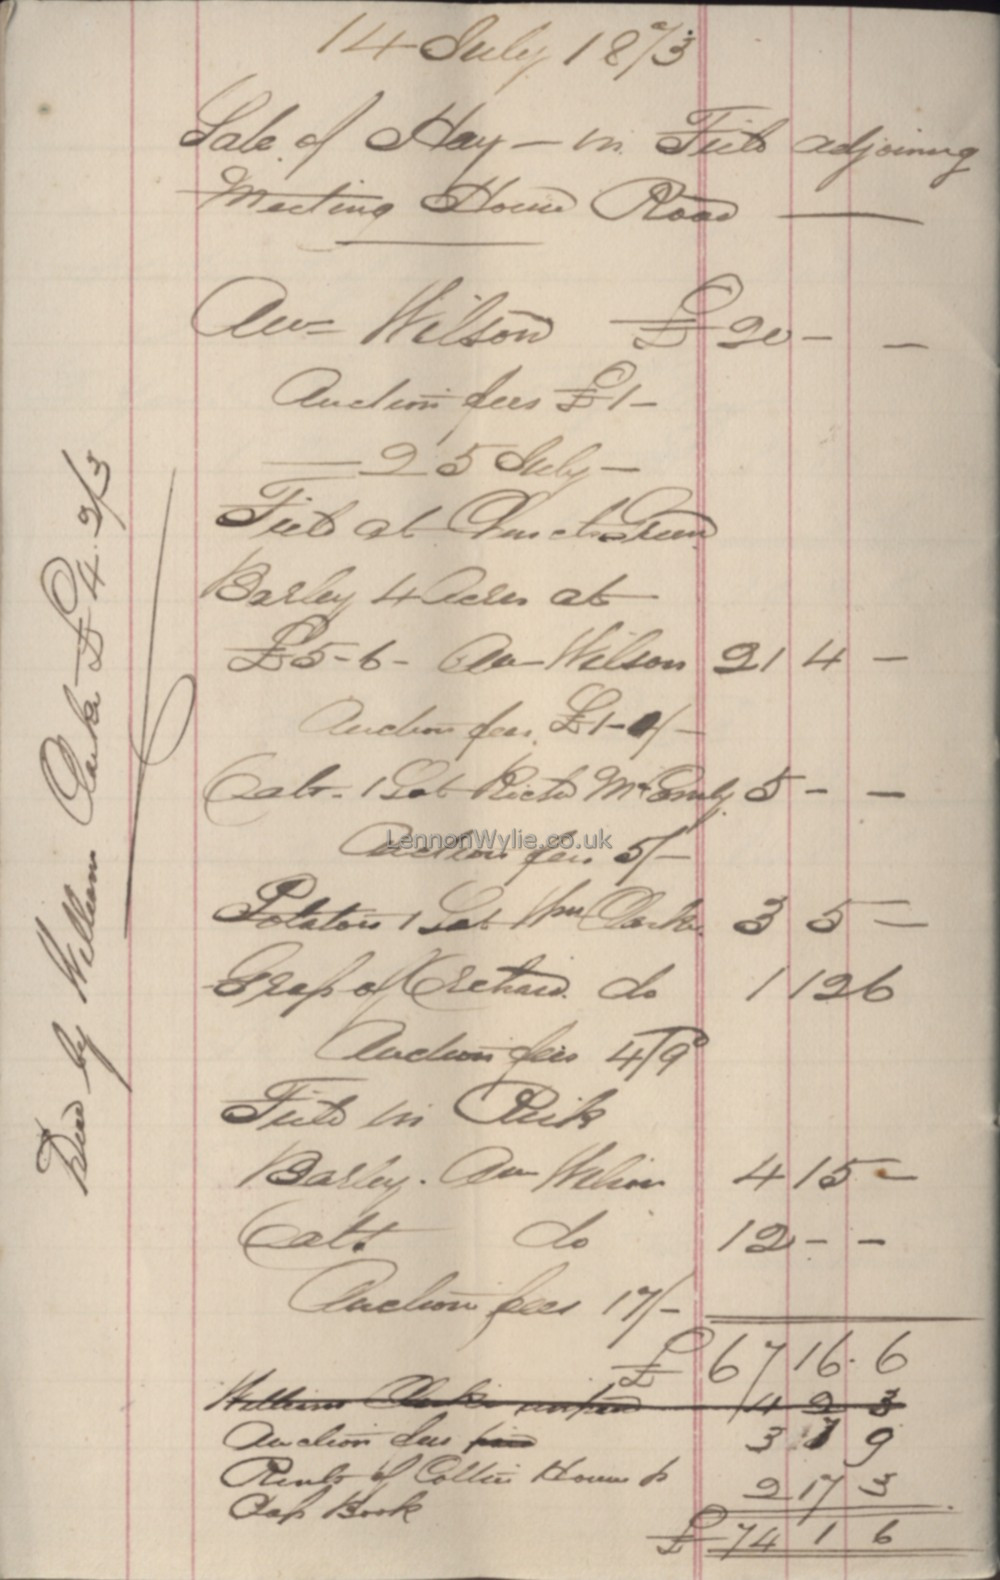 14 July 1873
Sale of Hay – in Field adjoining
Meeting House Road —
Aw= Wilson £ 20 – –
Auction fees £1 –
— 25 July –
Field at Green
Barley 4 Acres at
£5-6- Aw Wilson 21 4 –
Auction fees £1-1/-
Oats. 1 Lot Richd 5 – –
LennonWylie.co.uk
Auction fees 5/-
Potatoes 1 Lot Wm Clarke 3 5 –
Grass of Orchard do 1 12 6
Auction fees 4/9
Field in
Barley. Aw Wilson 4 15 –
Oats do 12 – –
Auction fees 17/-
£ 67 16. 6
William Clarke unpaid 4 2 3
Auction fees paid 3 7 9
Rents of House
Book 2 17 3
£ 74 1 6
Due by William Clarke £4. 2/3